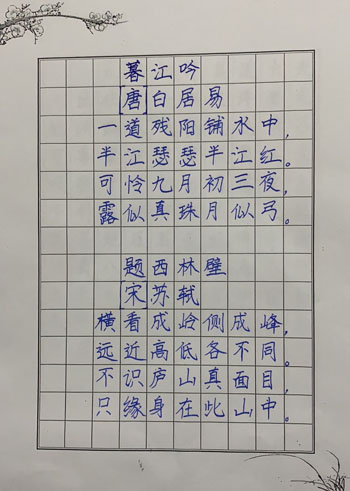 暮江吟
[唐]白居易
一道残阳铺水中,
半江瑟瑟半江红。
可怜九月初三夜,
露似真珠月似弓。
题西林壁
[宋]苏轼
横看成岭侧成峰,
远近高低各不同。
不识庐山真面目,
只缘身在此山中。